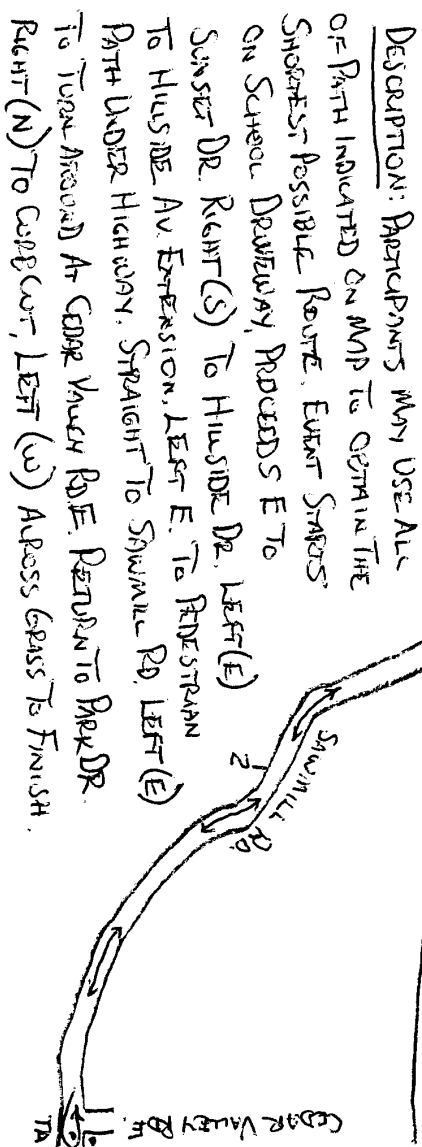 DESCRIPTION: PARTICIPANTS MAY USE ALL
OF PATH INDICATED ON MAP TO OBTAIN THE
SHORTEST POSSIBLE ROUTE. EVENT STARTS
ON SCHOOL DRIVEWAY, PROCEEDS E TO
SUNSET DR. RIGHT (S) TO HILLSIDE DR. LEFT (E)
TO HILLSIDE AV. EXTENSION. LEFT E. TO PEDESTRIAN
PATH UNDER HIGHWAY. STRAIGHT TO SAWMILL RD. LEFT (E)
TO TURN AROUND AT CEDAR VALLEY RD. E. RETURN TO PARK DR.
RIGHT (N) TO CURB CUT, LEFT (W) ACROSS GRASS TO FINISH.
SAWMILL RD.
2
CEDAR VALLEY RD E.
TA